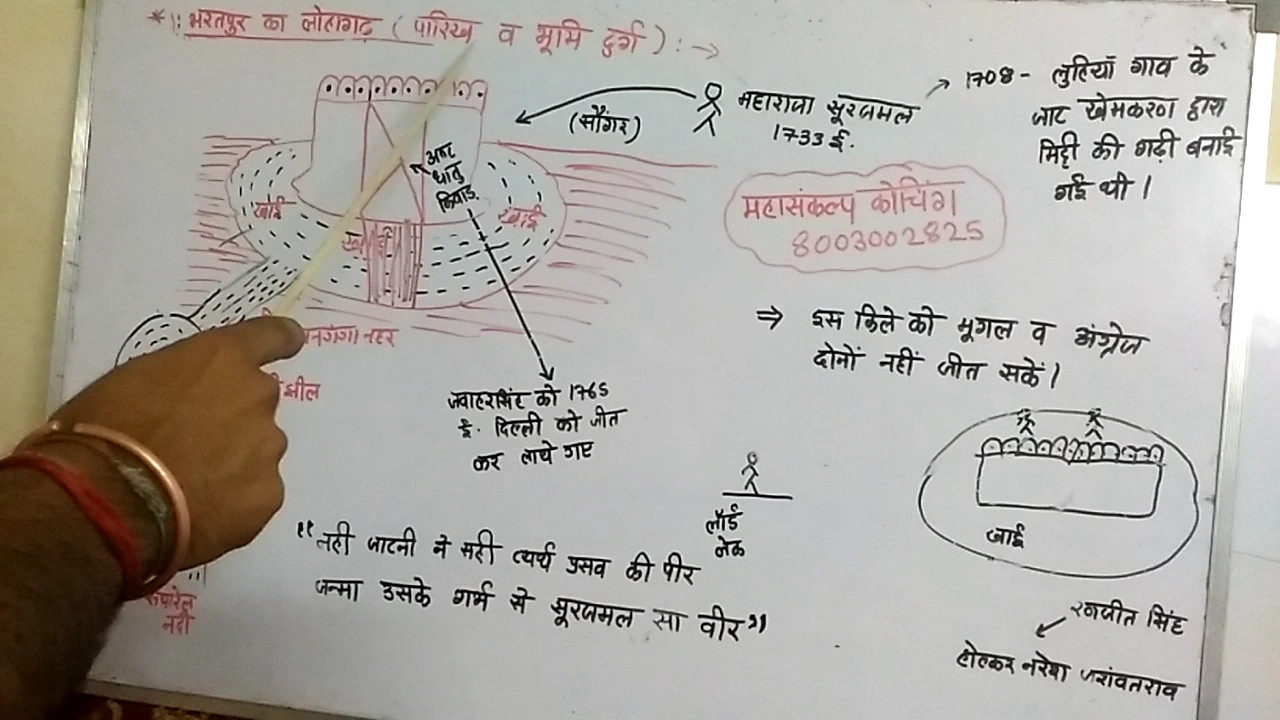 * 1: भरतपुर का लोहागढ़ ( पारिख व भूमि दुर्ग ) : →
(सौगर)
महाराजा सूरजमल
1733 ई.
1708 - लुहियाँ गाव के
जाट खेमकरण द्वारा
मिट्टी की गढ़ी बनाई
गई थी।
अष्ट
धातु
किवाड़
खाई
खाई
महासंकल्प कोचिंग
8003002825
नगंगा नहर
झील
⇒ इस किले को मूगल व अंग्रेज
दोनों नहीं जीत सकें।
जवाहरसिंह को 1765
ई. दिल्ली को जीत
कर लाये गए
लॉर्ड
लेक
खाई
"नही जाटनी ने सही व्यर्थ प्रसव की पीर
जन्मा उसके गर्भ से सूरजमल सा वीर"
रूपारेल
नदी
रनजीत सिंह
होल्कर नरेश जशंवतराव